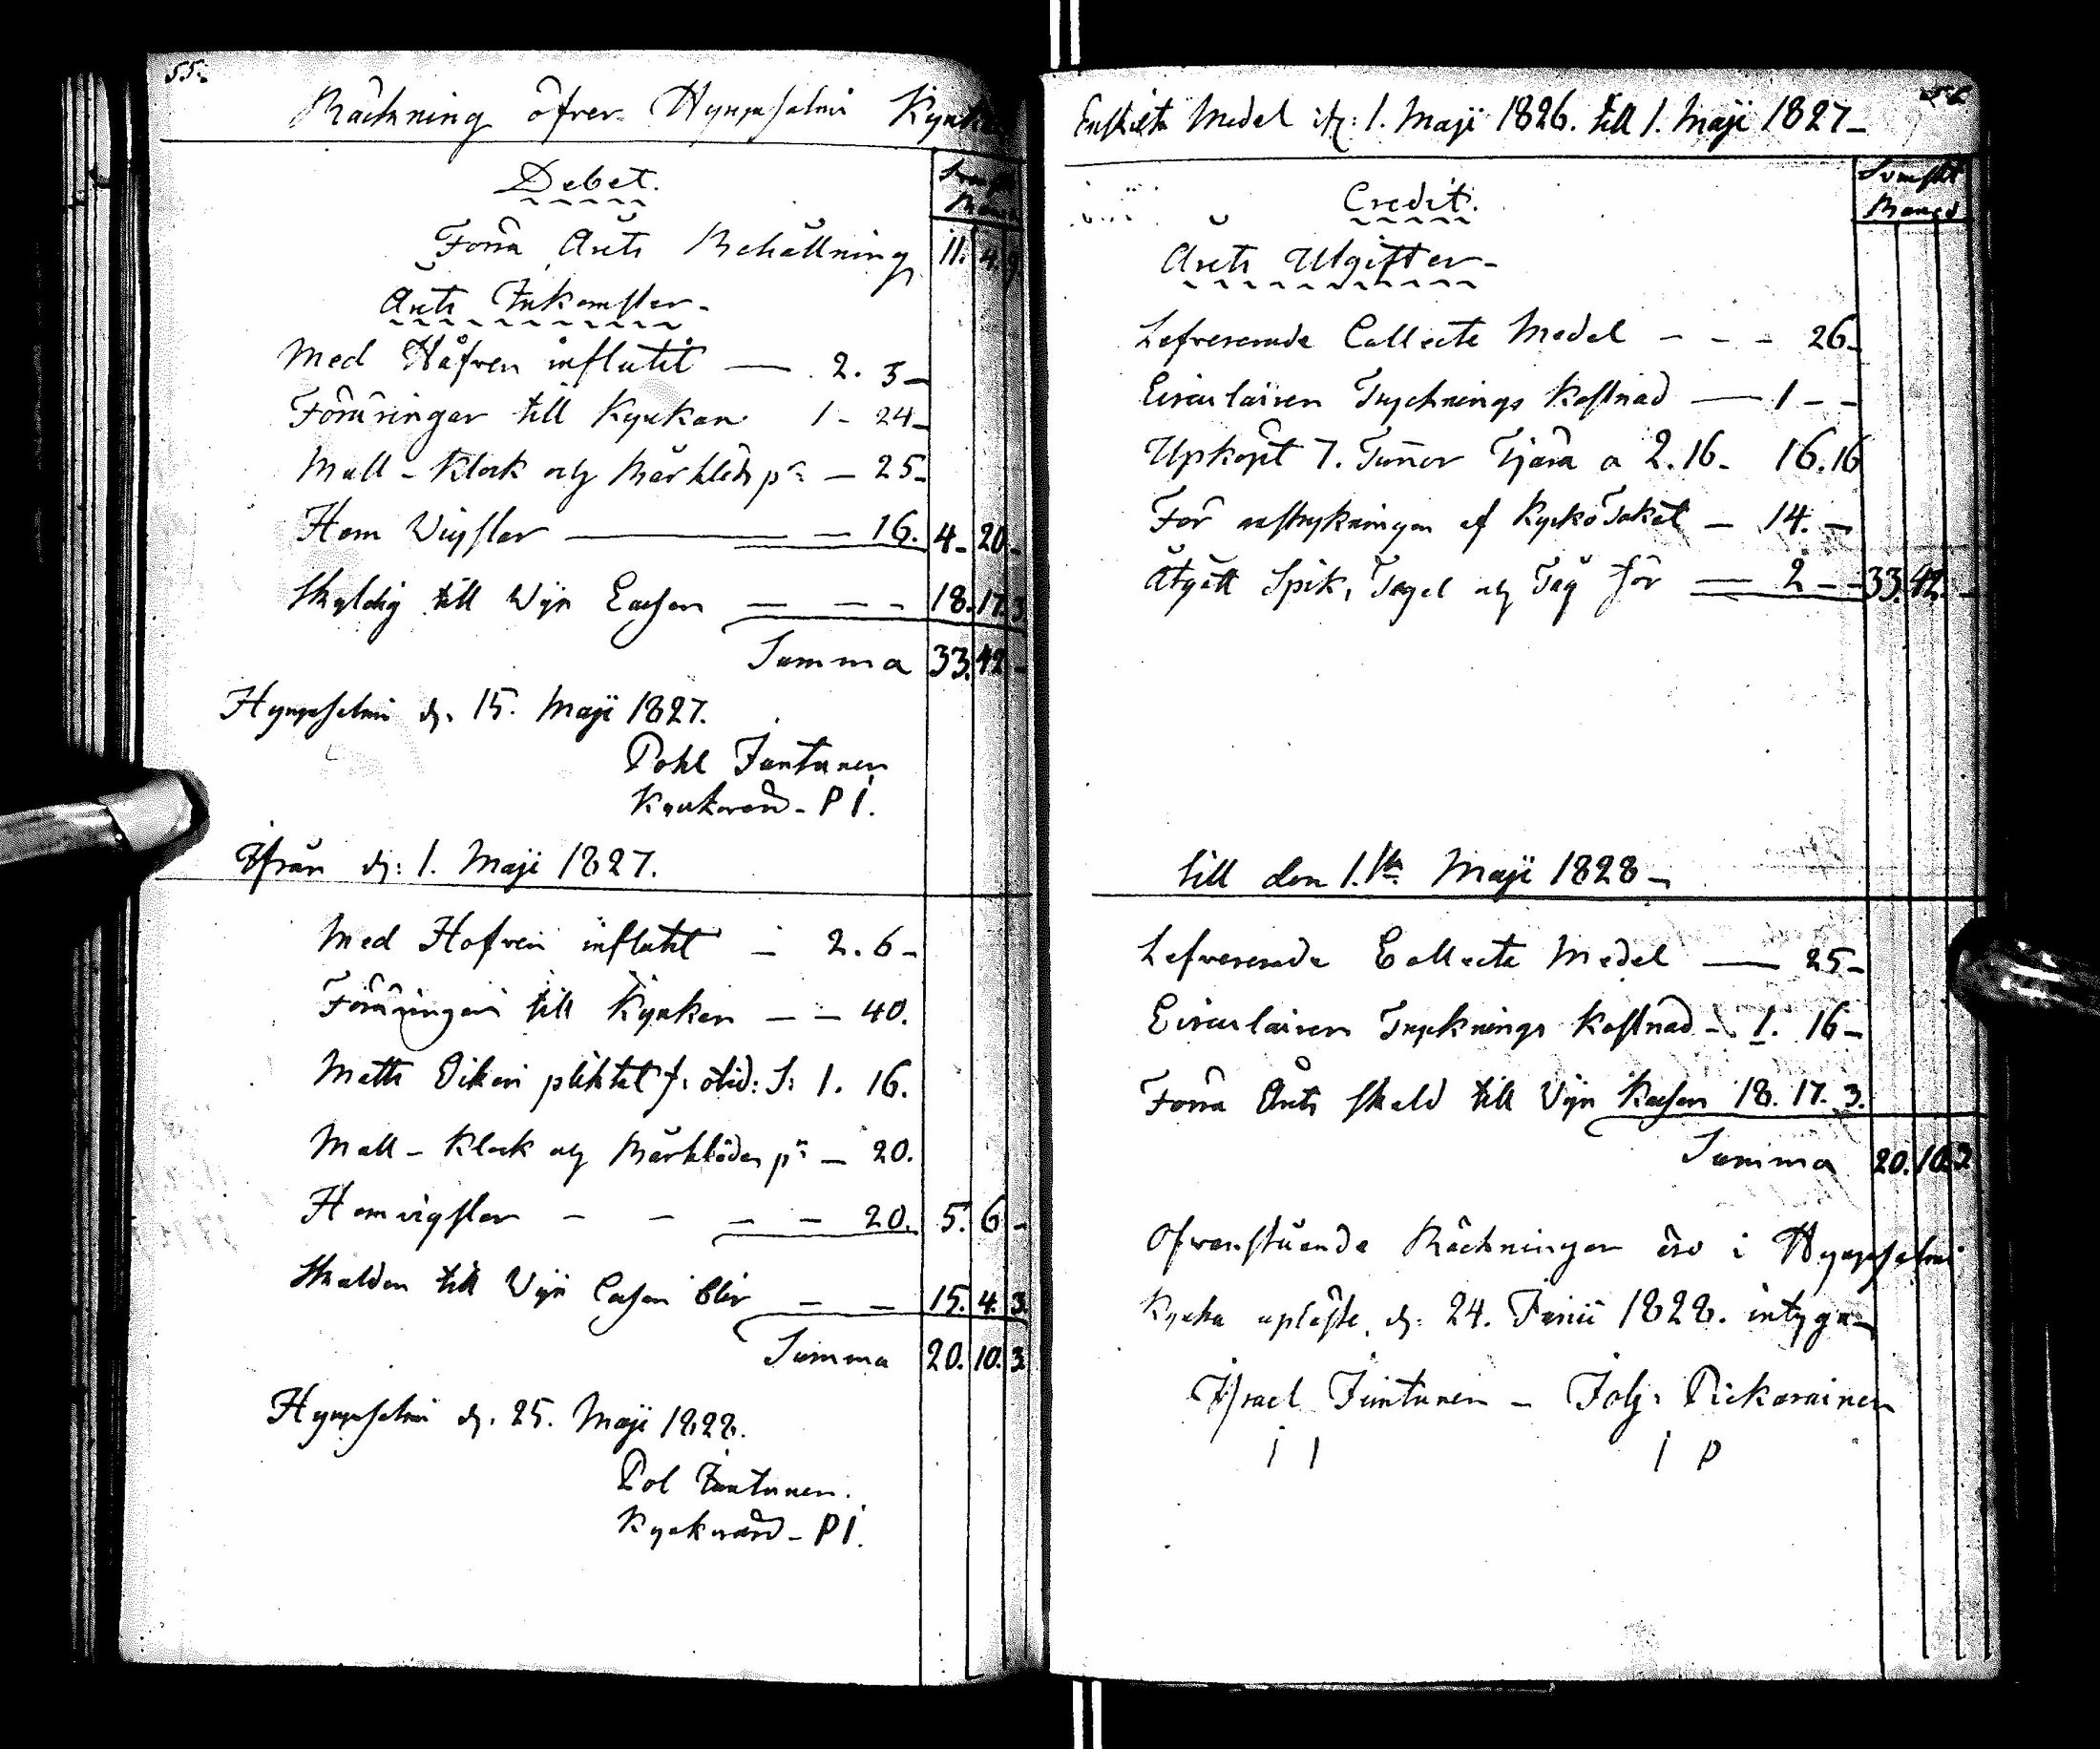 55.
Räckning öfver Hyrynsalmi Kyrko
Debet.
Svenskt
Banco
Förra Årets Behållning 11. 4. 9
Årets Inkomster-
Med Håfven influtit — 2. 3-
Föräringar till Kyrkan 1 - 24-
Mull - Klock och Bårkläds pr — 25-
Hem Vigslar — — 16. 4 - 20 -
Skyldig till Vijn Cassan — — - 18. 17. 3
Summa 33. 42 -
Hyrynsalmi d. 15. Maji 1827.
Pohl Juntunen
Kyrkovärd - P I.
Ifrån d: 1. Maji 1827.
Med Hofven influtit — 2. 6 -
Föräringar till Kyrkan — — 40.
Matts Oikari pliktat f: otid: S: 1. 16.
Mull - Klock och Bårkläder pr — 20.
Hemvigslar - - — — 20. 5. 6 -
Skulden till Vijn Cassan blir — — 15. 4. 3.
Summa 20. 10. 3
Hyrynsalmi d. 25. Maji 1828.
Pol Juntunen.
Kyrkovärd - P I.
56
Enskilta Medel ifr: 1. Maji 1826. till 1. Maji 1827-
Credit.
Svenskt
Banco
Årets Utgifter-
Lefvererade Collecte Medel - - - 26-
Circulairen Trychnings Kostnad — 1 - -
Upköpt 7. Tunnor Tjära a 2.16- 16.16
För anstrykningen af Kyrko Taket — 14. -
Åtgått Spik, Tegel och Tåg för — 2 - - 33. 42. -
till den 1.sta Maji 1828 -
Lefvererade Collecte Medel — 25-
Circulairen Trycknings Kostnad - 1. 16 -
Förra Årets skuld till Vijn Kassan 18. 17. 3.
Summa 20. 10. 3
Ofvanstående Räckningar äro i Hyrynsalmi
Kyrka upläste d: 24. Junii 1828. intyga-
Israel Juntunen - Joh: Pikarainen
I I I P